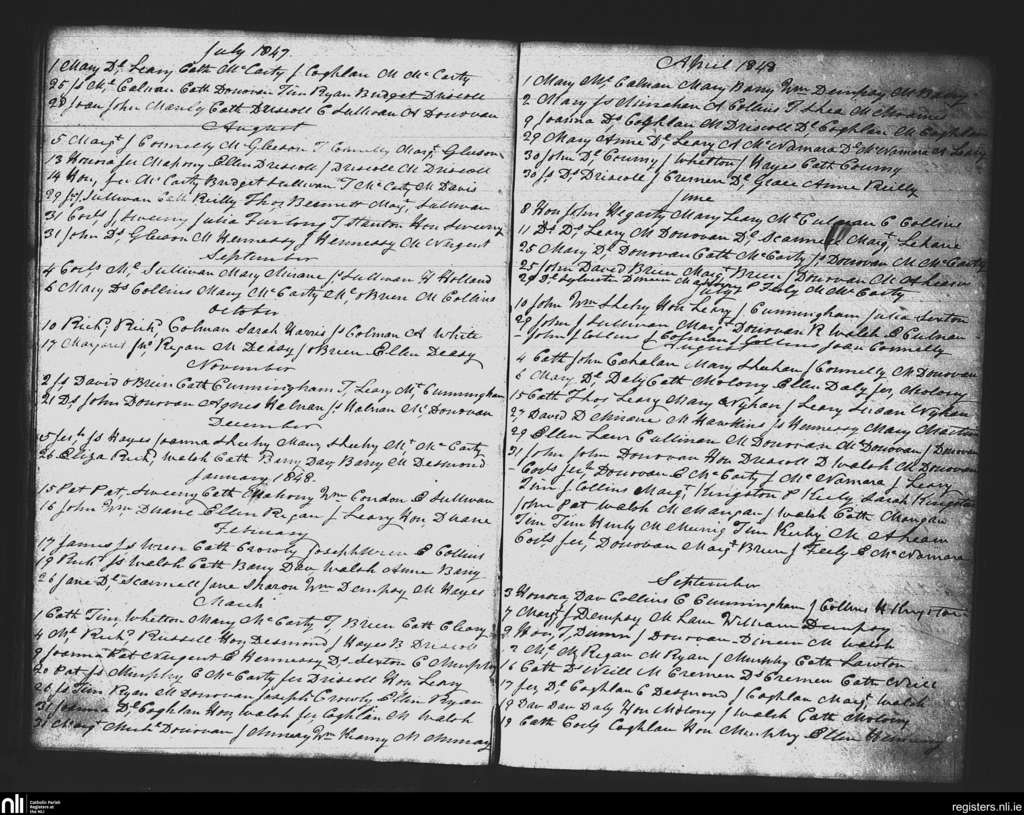 July 1847
1 Mary Dl Leary Cath McCarty J Coghlan M McCarty
25 Js Ml Calnan Cath Donovan Tim Ryan Budget Driscoll
28 Joan John Manly Cath Driscoll C Sullivan A Donovan
August
5 Margt J Connelly M Gleeson T Connelly Margt Gleeson
13 Honora Jer Mahony Ellen Driscoll J Driscoll M Driscoll
14 Hon, Jer McCarty Budget Sullivan T McCarty M Davis
29 Sullivan Cath Reilly Thos Bennett Margt Sullivan
31 Corls J Sweeny Julia Furlong T Stanton Hon Sweeny
31 John Ds Gleeson M Hennessy J Hennessy M Nargent
September
4 Corls Ml Sullivan Mary Minane Js Sullivan H Holland
6 Mary Ds Collins Mary McCarty Ml O Brien M Collins
October
10 Richd Richd Colman Sarah Harris Js Colman A White
17 Margaret Regan M Deasy J O Brien Ellen Deasy
November
2 Js David O Brien Cath Cunningham T, Leary Mt Cunningham
21 Ds John Donovan Agnes Halnan Js Halnan Mt Donovan
December
5 Js Hayes Joanna Sheehy Maur, Sheehy Mt McCarty
26 Eliza Richd Walsh Cath Barry Dav, Barry M Desmond
January 1848
15 Pat Pat, Sweeny Cath Mahony Wm Condon E Sullivan
16 John Wm Duane Ellen Regan J Leary Hon Duane
February
17 James Js Wren Cath Crowly Joseph Wren E Collins
19 Richd Js Walsh Cath Barry Dav Walsh Anne Barry
26 Jane Dl Scannell Jane Sharon Wm Dempsy M Hayes
March
1 Cath Tim, Whelton Mary McCarty T, Brien Cath Cleary
4 Ml Richd Russell Hon Desmond J Hayes B Driscoll
9 Joanna Pat Nargent E Hennessy Ds Sexton C Murphy
20 Pat Js Murphy E McCarty Jer Driscoll Hon Leary
26 Js Tim Ryan M Donovan Joseph Crowly Ellen Ryan
31 Joanna Dl Coghlan Hon, Walsh Jer Coghlan M Walsh
31 Margt Mich Donovan J Wm Kearny M
April 1848
1 Mary Ml Calnan Mary Barry Wm Dempsy M Barry
2 Mary Js Minahan A Collins T Shea M
9 Joanna Ds Coghlan M Driscoll Dl Coghlan M Coghlan
29 Mary Anne Dl Leary A McNamara Dl McNamara A Leary
30 John Dl Courny J Whelton J Hayes Cath Courny
30 Js Ds Driscoll J Cremen Dl Grace Anne Reilly
June
8 Hon John Hegarty Mary Leary Ml Culnan C Collins
11 Ds Ds Leary M Donovan Dl Scannell Margt Lehane
25 Mary Dl Donovan Cath McCarty Js Donovan M McCarty
25 John David Brien Margt Brien J Donovan M Ahearn
29 Dl Sylvester Dineen Mahony P Feely M McCarty
July
10 John Wm Sheehy Hon Leary J Cunningham Julia Sexton
29 John J Sullivan Margt Donovan R Walsh E Culnan
John J Collins C Cosman J Collins Joan Connelly
August
4 Cath John Cahalan Mary Shehan J Connelly M Donovan
6 Mary, Dl Daly Cath Molony Ellen Daly Jer, Molony
15 Cath Thos Leary Mary Wyhan J Leary Susan Wyhan
27 David D Minane M Hawkins Js Hennessy Mary
29 Ellen Laur Cullinan M Donovan Ml Donovan J Donovan
31 John John Donovan Hon Driscoll D Walsh M Donovan
Corls Jerh Donovan E McCarty J McNamara J Leary
Tim J Collins Margt Kingston P Kiely Sarah Kingston
John Pat Walsh M Mangan J Walsh Cath Mangan
Tim Tim Hurly M Murrig Tim Kirby M Ahearn
Corls Jerh Donovan Margt Brien J Feely E McNamara
September
3 Honora Dav Collins C Cunningham J Collins H Kingston
7 Margt J Dempsy M Lane William Dempsy
9 Hon, T, J Donovan Dineen M Walsh
Ml M Regan M Ryan J Murphy Cath Lawton
16 Cath Ds Neill M Cremen Ds Cremen Cath Neill
17 Jer, Dl Coghlan C Desmond J Coghlan Margt Walsh
19 Dav Dan Daly Hon Molony J Walsh Cath Molony
19 Cath Corls Coghlan Hon Murphy Ellen
nli
Catholic Parish
Registers at
the NLI
registers.nli.ie